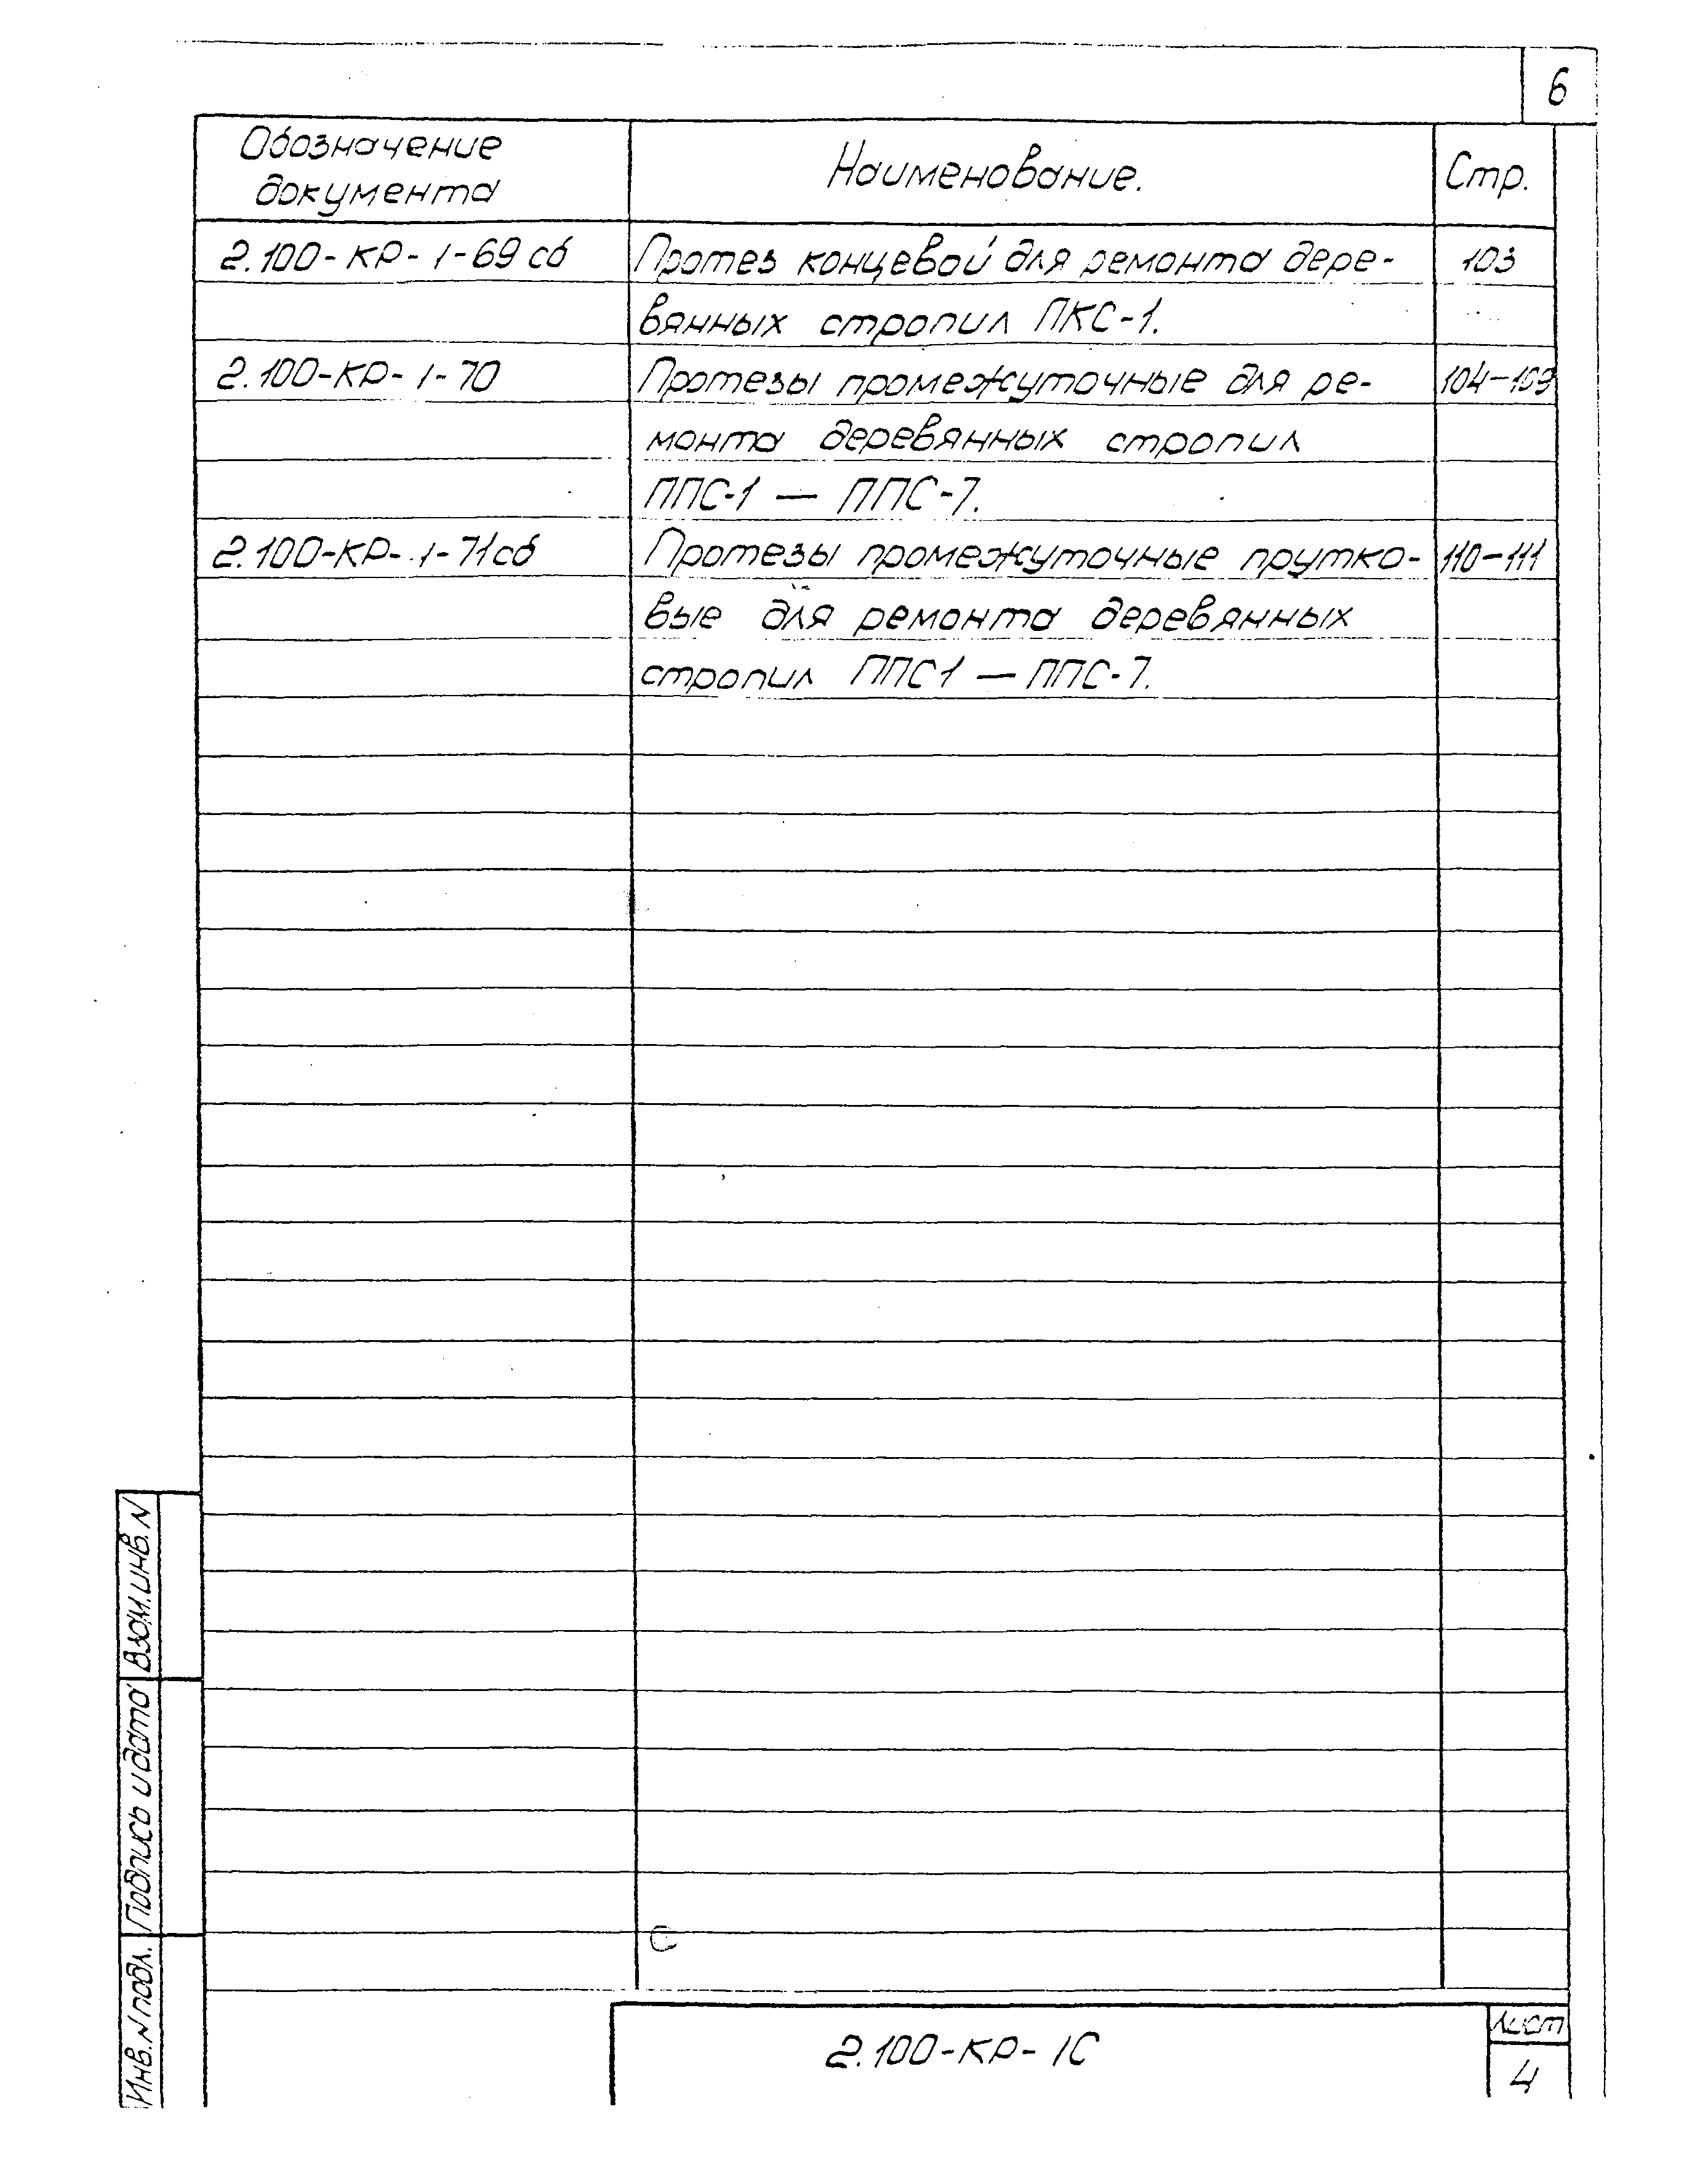 6
Обозначение документа
Наименование.
Стр.
2.100-КР-1-69 сб Протез концевой для ремонта дере- 103
вянных стропил ПКС-1.
2.100-КР-1-70 Протезы промежуточные для ре- 104-109
монта деревянных стропил
ППС-1 — ППС-7.
2.100-КР-1-71сб Протезы промежуточные прутко- 110-111
вые для ремонта деревянных
стропил ППС1 — ППС-7.
Взам.инв.N
Подпись и дата
Инв.N подл.
С
2.100-КР-1С
Лист
4